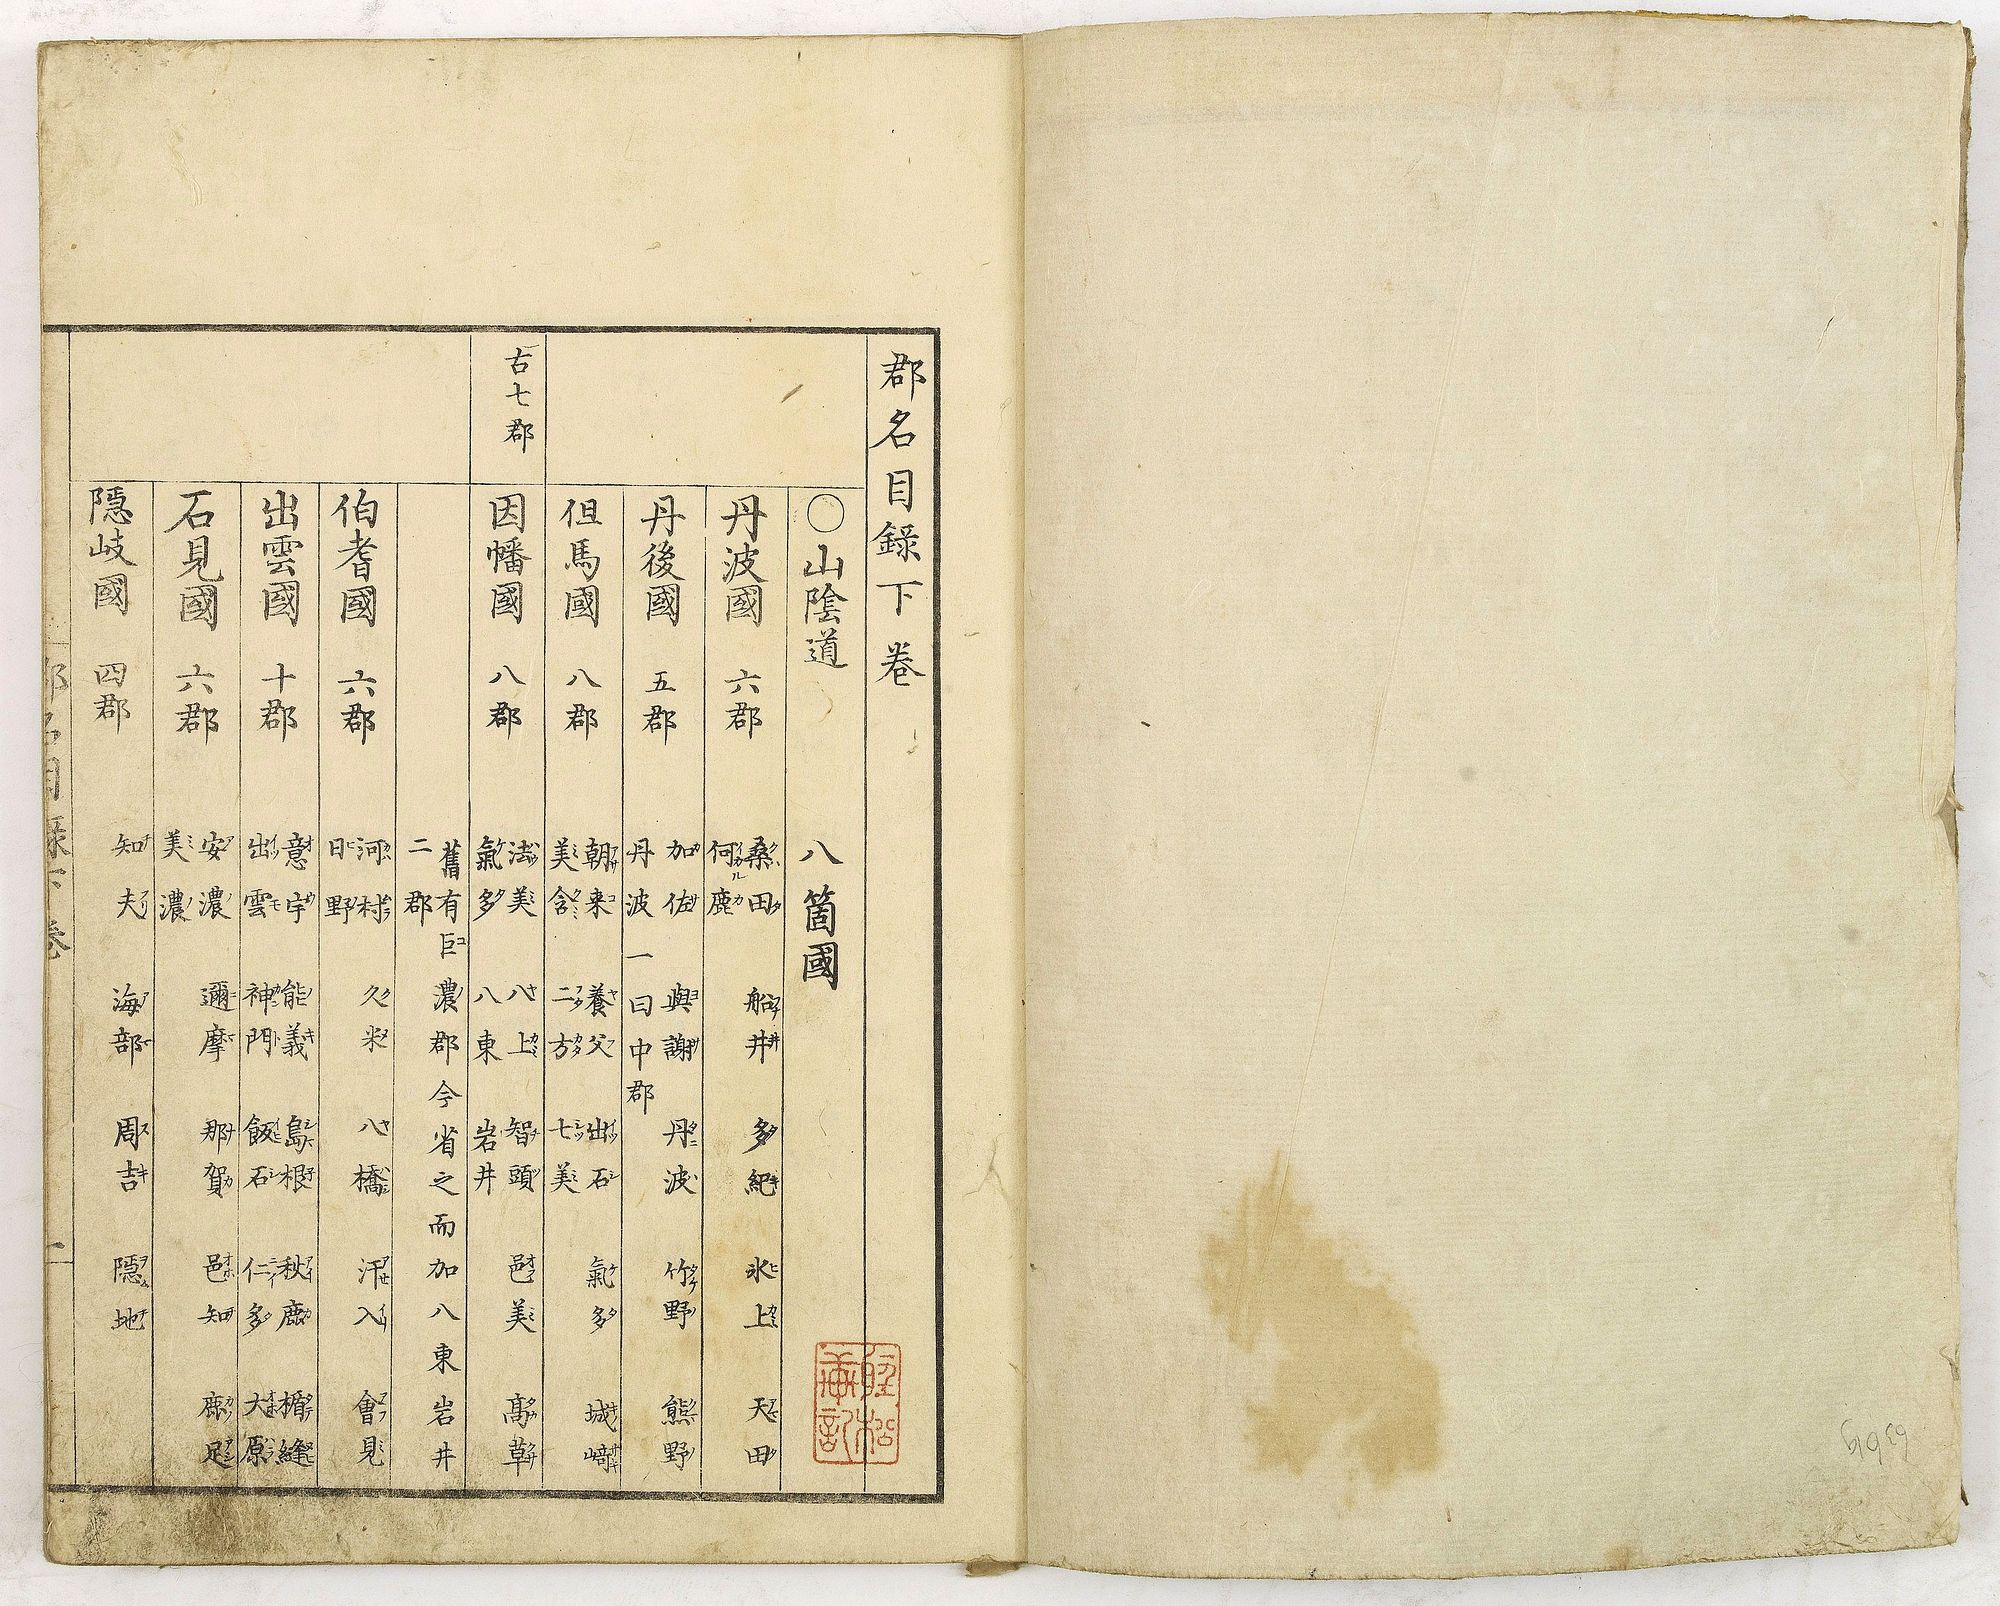 郡名目録下卷
○山陰道 八箇國
丹波國 六郡 桑田 船井 多紀 氷上 天田
何鹿
丹後國 五郡 加佐 與謝 丹波 竹野 熊野
丹波一曰中郡
但馬國 八郡 朝来 養父 出石 氣多 城﨑
美含 二方 七美
古七郡
因幡國 八郡 法美 八上 智頭 邑美 髙草
氣多 八東 岩井
舊有巨濃郡今省之而加八東岩井
二郡
伯耆國 六郡 河村 久米 八橋 汗入 會見
日野
出雲國 十郡 意宇 能義 島根 秋鹿 楯縫
出雲 神門 飯石 仁多 大原
石見國 六郡 安濃 邇摩 那賀 邑知 鹿足
美濃
隠岐國 四郡 知夫 海部 周吉 隠地
郡名目録下卷 一